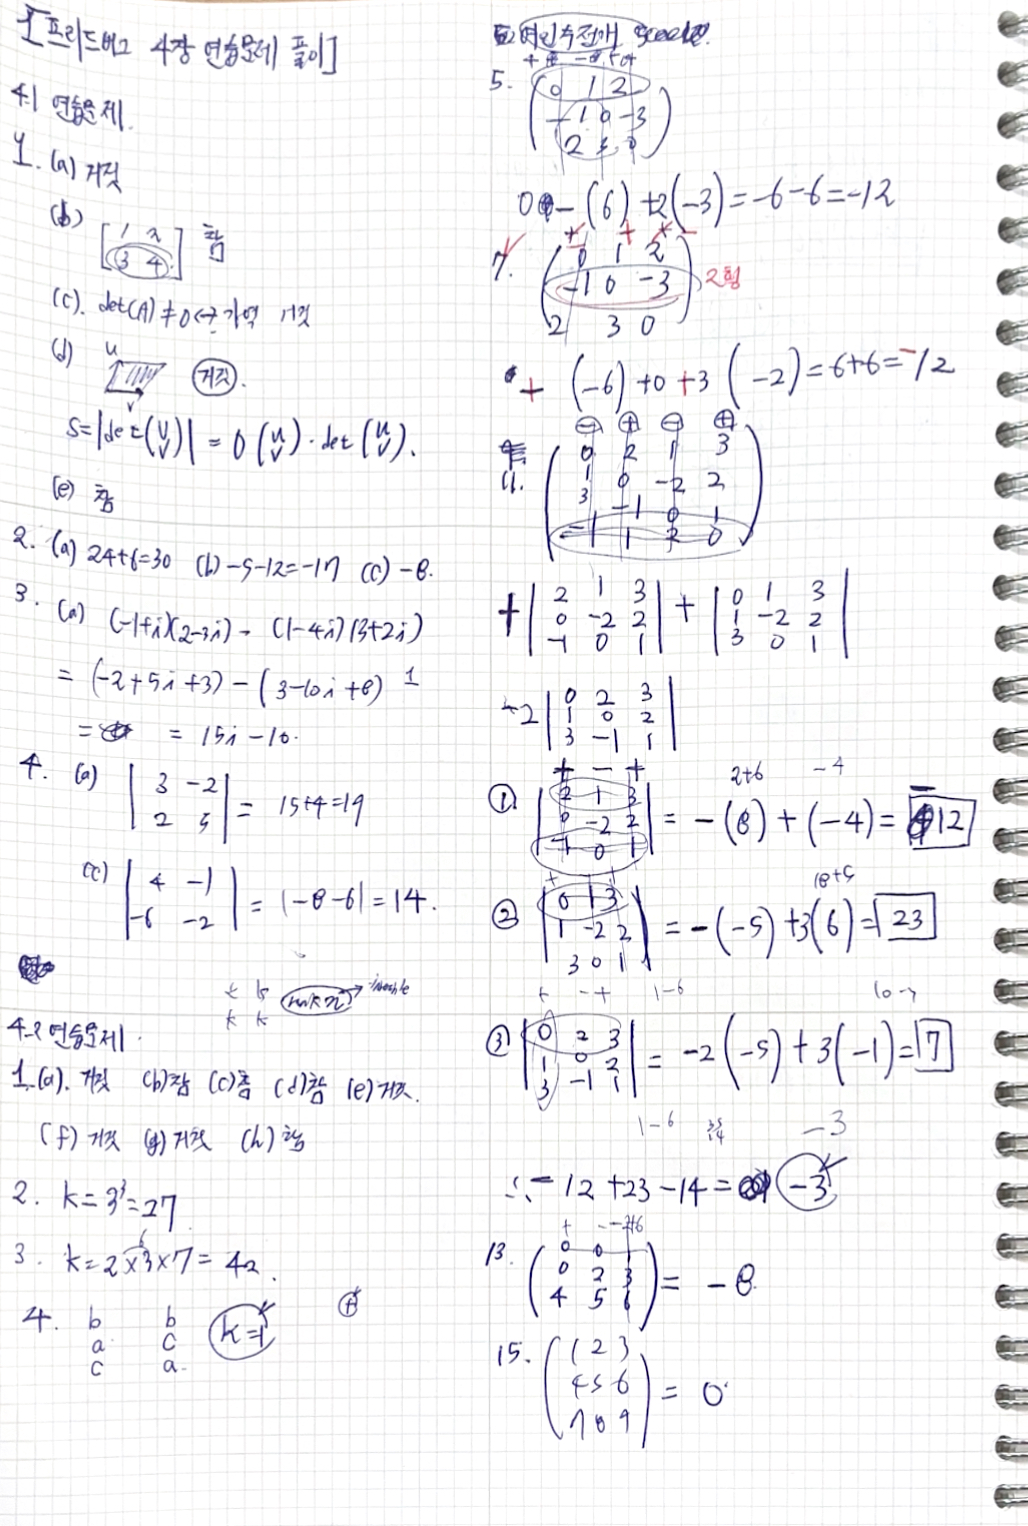 [프리드버그 4장 연습문제 풀이]
4.1 연습문제.
1. (a) 거짓
(b) [1 2
3 4] 참
(c). det(A) ≠ 0 ↔ 가역 거짓
(d) u
v
거짓.
S = |det(u v)| = O(u v) · det(u v).
(e) 참
2. (a) 24+6=30 (b) -5-12=-17 (c) -8.
3. (a) (-1+i)(2-3i) - (1-4i)(3+2i)
= (-2+5i+3) - (3-10i+8)
= 15i-10.
4. (a) |3 -2
2 5| = 15+4=19
(c) |4 -1
-6 -2| = |-8-6| = 14.
rank n
4-2 연습문제.
1. (a). 거짓 (b) 참 (c) 참 (d) 참 (e) 거짓.
(f) 거짓 (g) 거짓 (h) 참
2. k = 3³ = 27
3. k = 2×3×7 = 42.
6
4. b b
a c
c a
k=1
여인수전개
+ - +
5. (0 1 2
-1 0 -3
2 3 0)
0 - (6) + 2(-3) = -6-6 = -12
7. (0 1 2
-1 0 -3
2 3 0) 2행
+ (-6) + 0 + 3(-2) = 6+6 = -12
⊖ ⊕ ⊖ ⊕
11. (0 2 1 3
1 0 -2 2
3 -1 0 1
-1 1 2 0)
+ |2 1 3
0 -2 2
-1 0 1| + |0 1 3
1 -2 2
3 0 1|
-2 |0 2 3
1 0 2
3 -1 1|
+ - +
2+6 -4
① |2 1 3
0 -2 2
-1 0 1| = -(8) + (-4) = -12
18+5
② |0 1 3
1 -2 2
3 0 1| = -(-5) + 3(6) = 23
+ - + 1-6
③ |0 2 3
1 0 2
3 -1 1| = -2(-5) + 3(-1) = 7
1-6 -3
∴ -12+23-14 = -3
13. (0 0 1
0 2 3
4 5 6) = -8.
15. (1 2 3
4 5 6
7 8 9) = 0